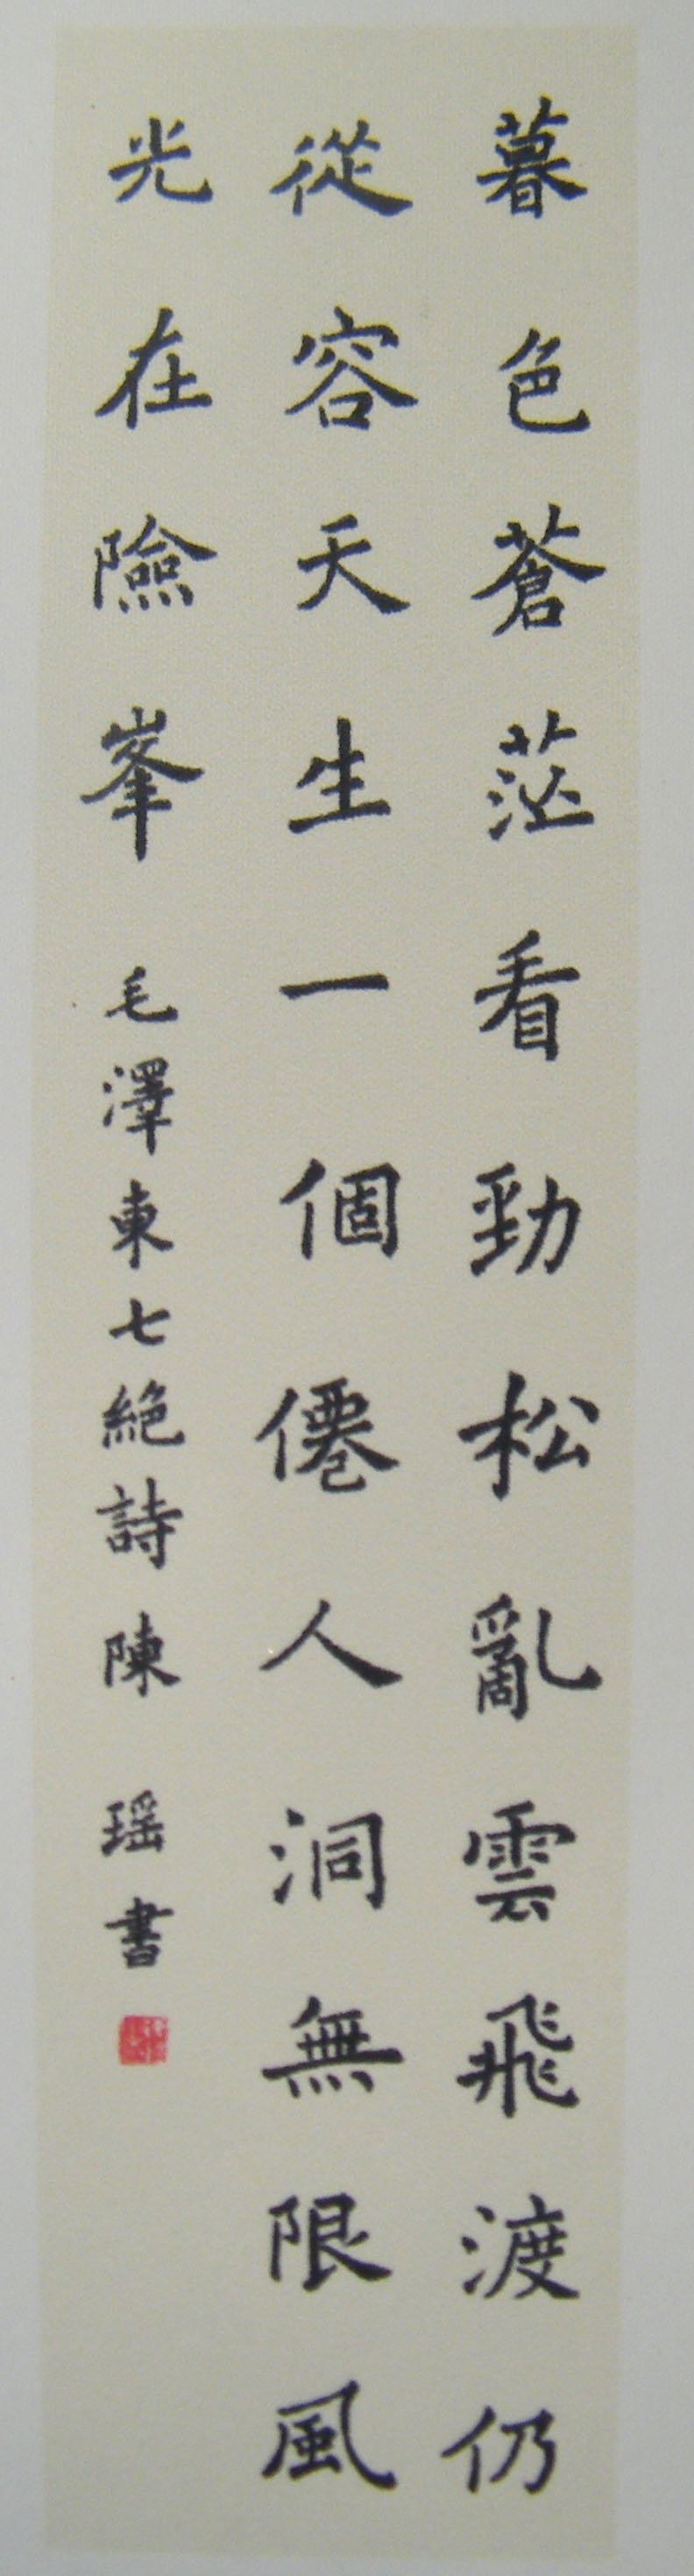 暮色蒼茫看勁松亂雲飛渡仍
從容天生一個僊人洞無限風
光在險峯
毛澤東七絕詩陳瑶書